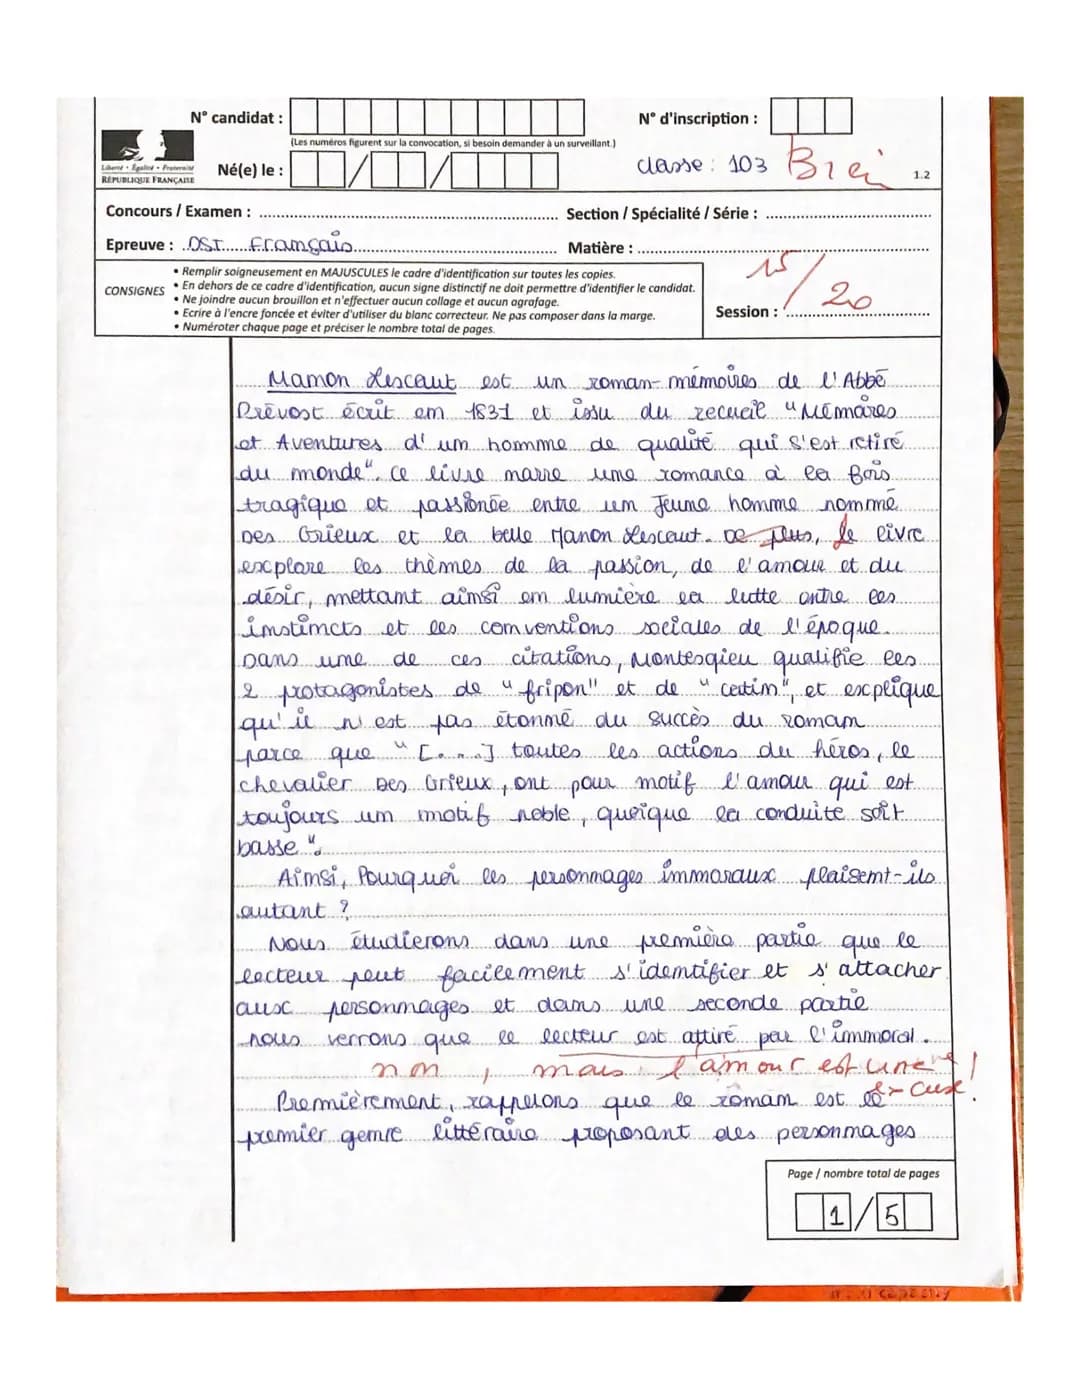 N° candidat :
N° d'inscription :
(Les numéros figurent sur la convocation, si besoin demander à un surveillant.)
Liberté • Égalité • Fraternité
RÉPUBLIQUE FRANÇAISE
Né(e) le :
classe : 103
1.2
Concours / Examen :
Section / Spécialité / Série :
Epreuve : DST Français
Matière :
CONSIGNES
• Remplir soigneusement en MAJUSCULES le cadre d'identification sur toutes les copies.
• En dehors de ce cadre d'identification, aucun signe distinctif ne doit permettre d'identifier le candidat.
• Ne joindre aucun brouillon et n'effectuer aucun collage et aucun agrafage.
• Ecrire à l'encre foncée et éviter d'utiliser du blanc correcteur. Ne pas composer dans la marge.
• Numéroter chaque page et préciser le nombre total de pages.
15/20
Session :
Manon Lescaut est un roman-mémoires de l'Abbé
Prévost écrit en 1831 et issu du recueil "Mémoires
et Aventures d'un homme de qualité qui s'est retiré
du monde". Ce livre narre une romance à la fois
tragique et passionée entre un Jeune homme nommé
Des Grieux et la belle Manon Lescaut. De plus, le livre
explore les thèmes de la passion, de l'amour et du
désir, mettant ainsi en lumière la lutte entre les
instincts et les conventions sociales de l'époque.
Dans une de ces citations, Montesqieu qualifie les
2 protagonistes de "fripon" et de "catin", et explique
qu'il n'est pas étonné du succès du roman
parce que "[....] toutes les actions du héros, le
chevalier Des Grieux, ont pour motif l'amour qui est
toujours un motif noble, quoique la conduite soit
basse".
Ainsi, Pourquoi les personnages immoraux plaisent-ils
autant ?
Nous étudierons dans une première partie que le
lecteur peut facilement s'identifier et s'attacher
aux personnages et dans une seconde partie
nous verrons que le lecteur est attiré par l'immoral.
non, mais l'amour est une
excuse !
Premièrement, rappelons que le roman est le
premier genre littéraire proposant des personnages
Page / nombre total de pages
1/5